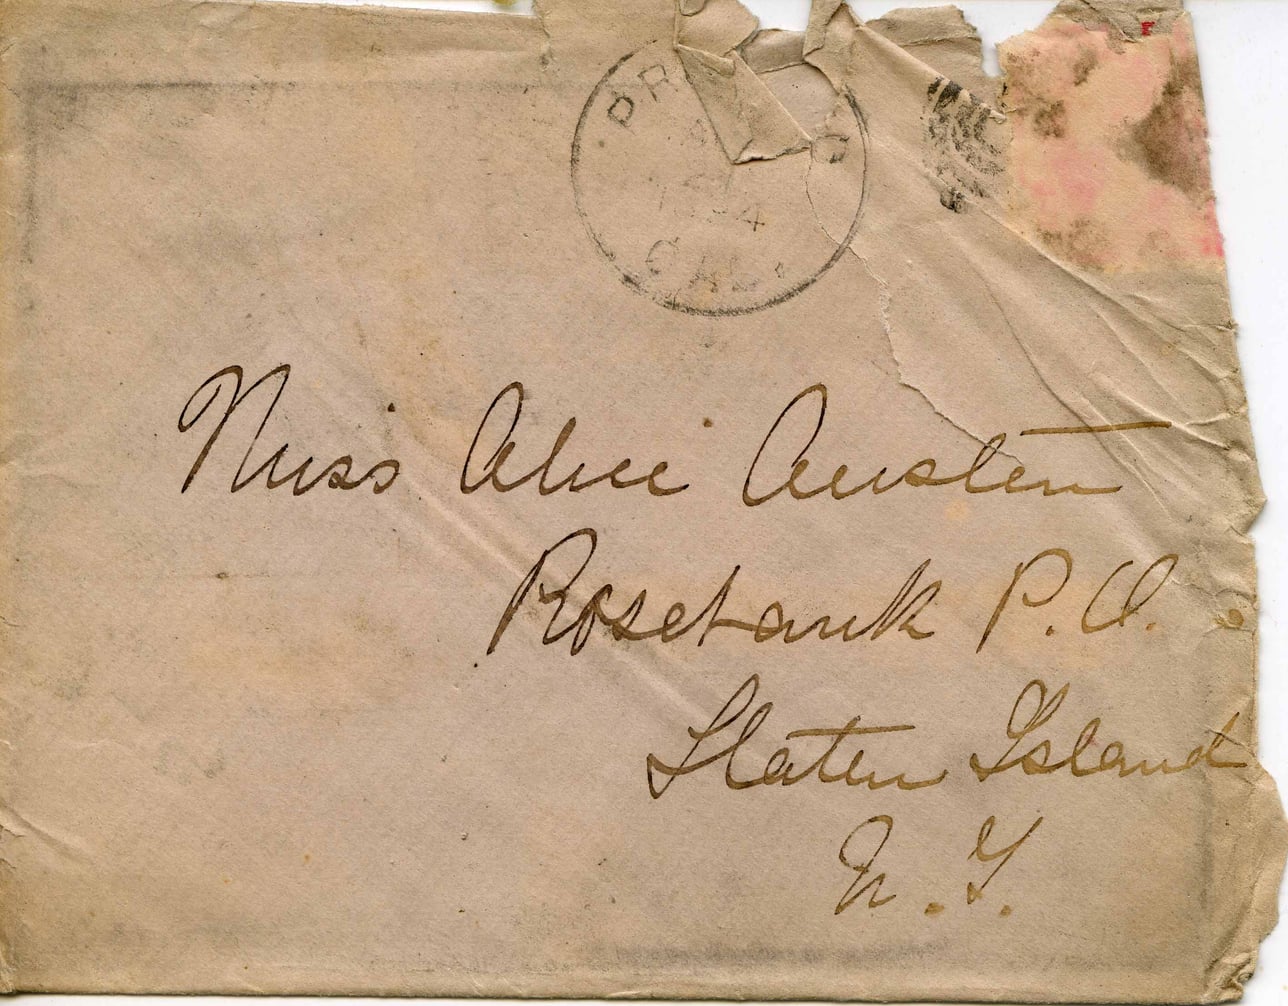 CAL.
Miss Alice Austen
Rosebank P.O.
Staten Island
N.Y.